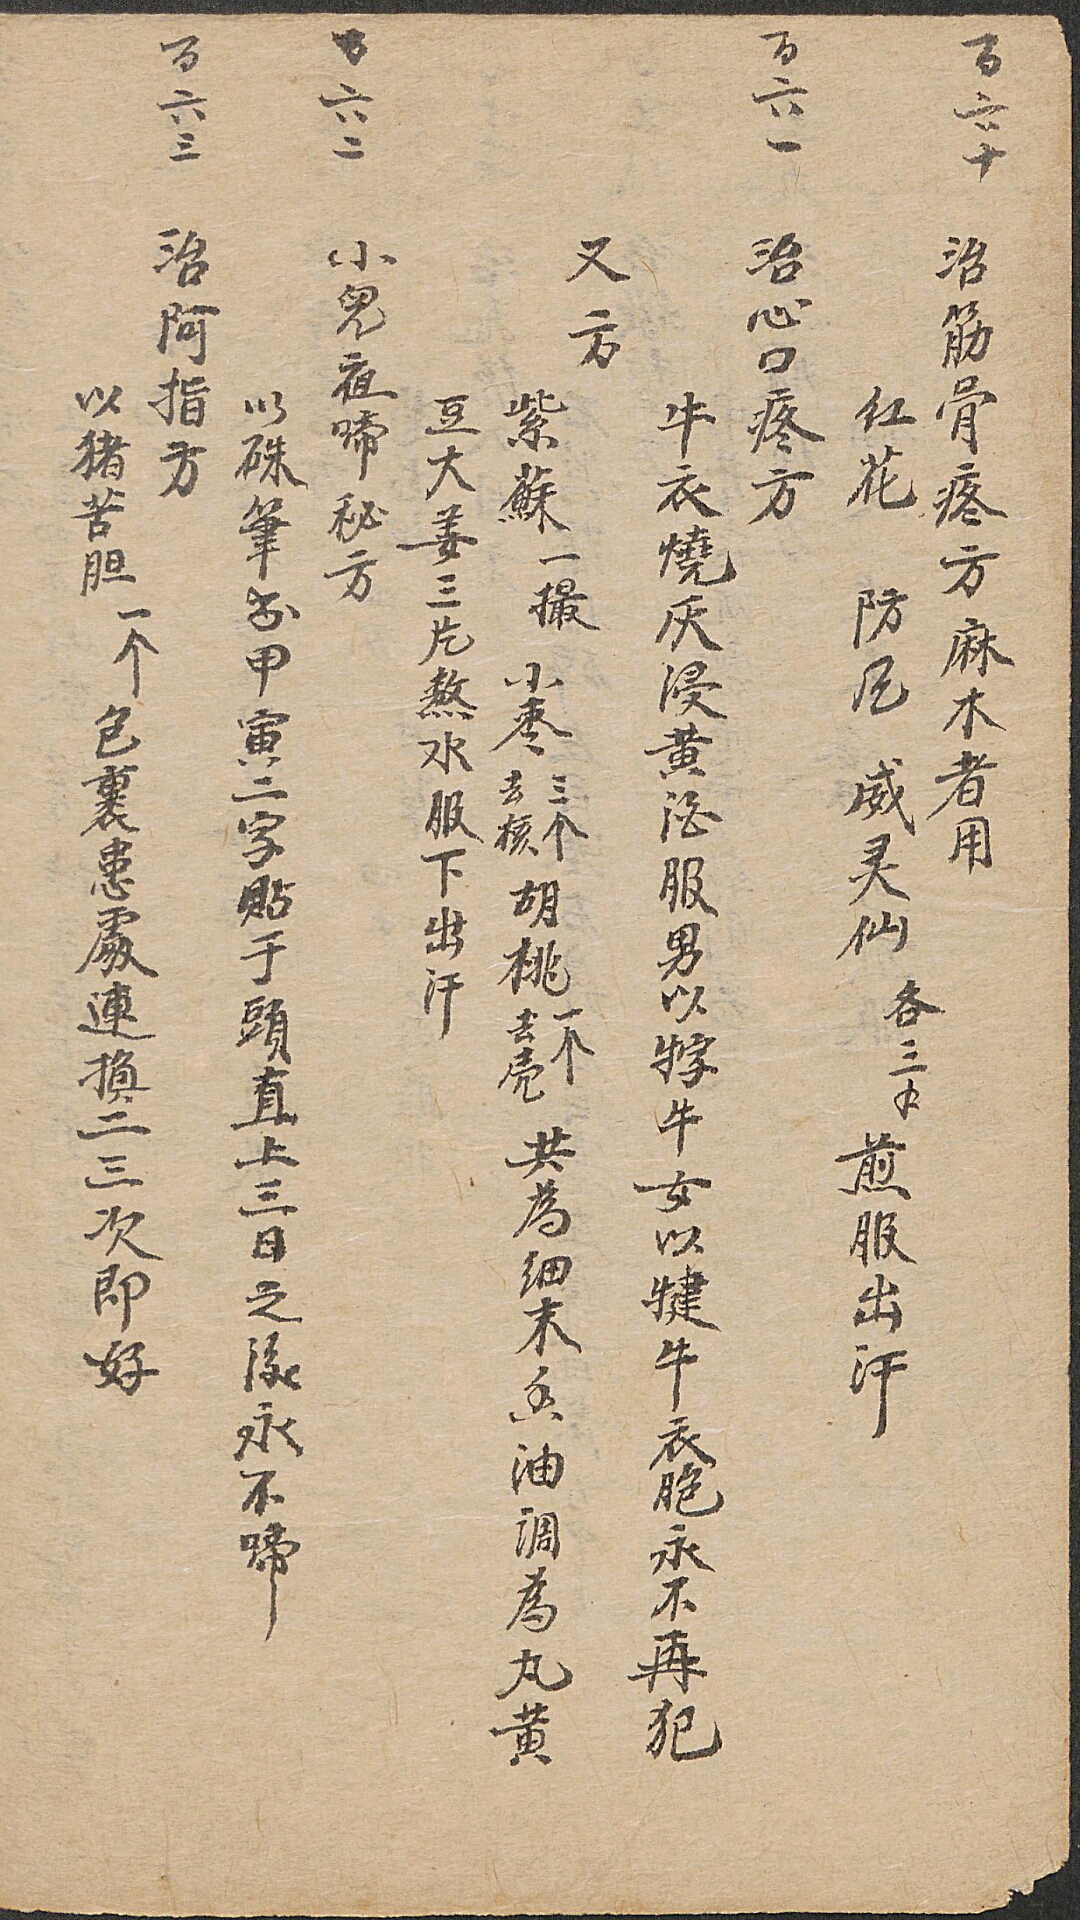 百六十 治筋骨疼方麻木者用
红花 防风 威灵仙 各三分 煎服出汗
百六一 治心口疼方
牛衣燒灰浸黃酒服男以牸牛女以犍牛衣胞永不再犯
又方
紫蘇一撮 小棗三个去核 胡桃一个去壳 共為細末香油調為丸黃
豆大姜三片熬水服下出汗
百六二 小兒夜啼秘方
以硃筆書甲寅二字貼于頭直上三日之後永不啼
百六三 治阿指方
以猪苦胆一个包裹患處連換二三次即好